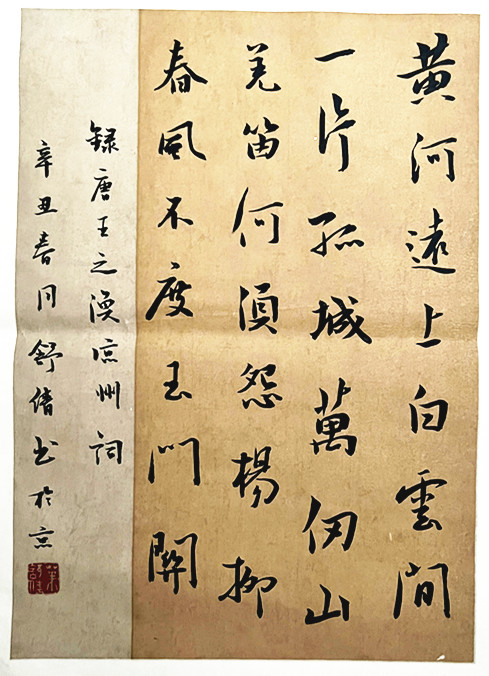 黄河遠上白雲間
一片孤城萬仞山
羌笛何須怨楊柳
春風不度玉門關
録唐王之渙凉州詞
辛丑春月舒倩书於京